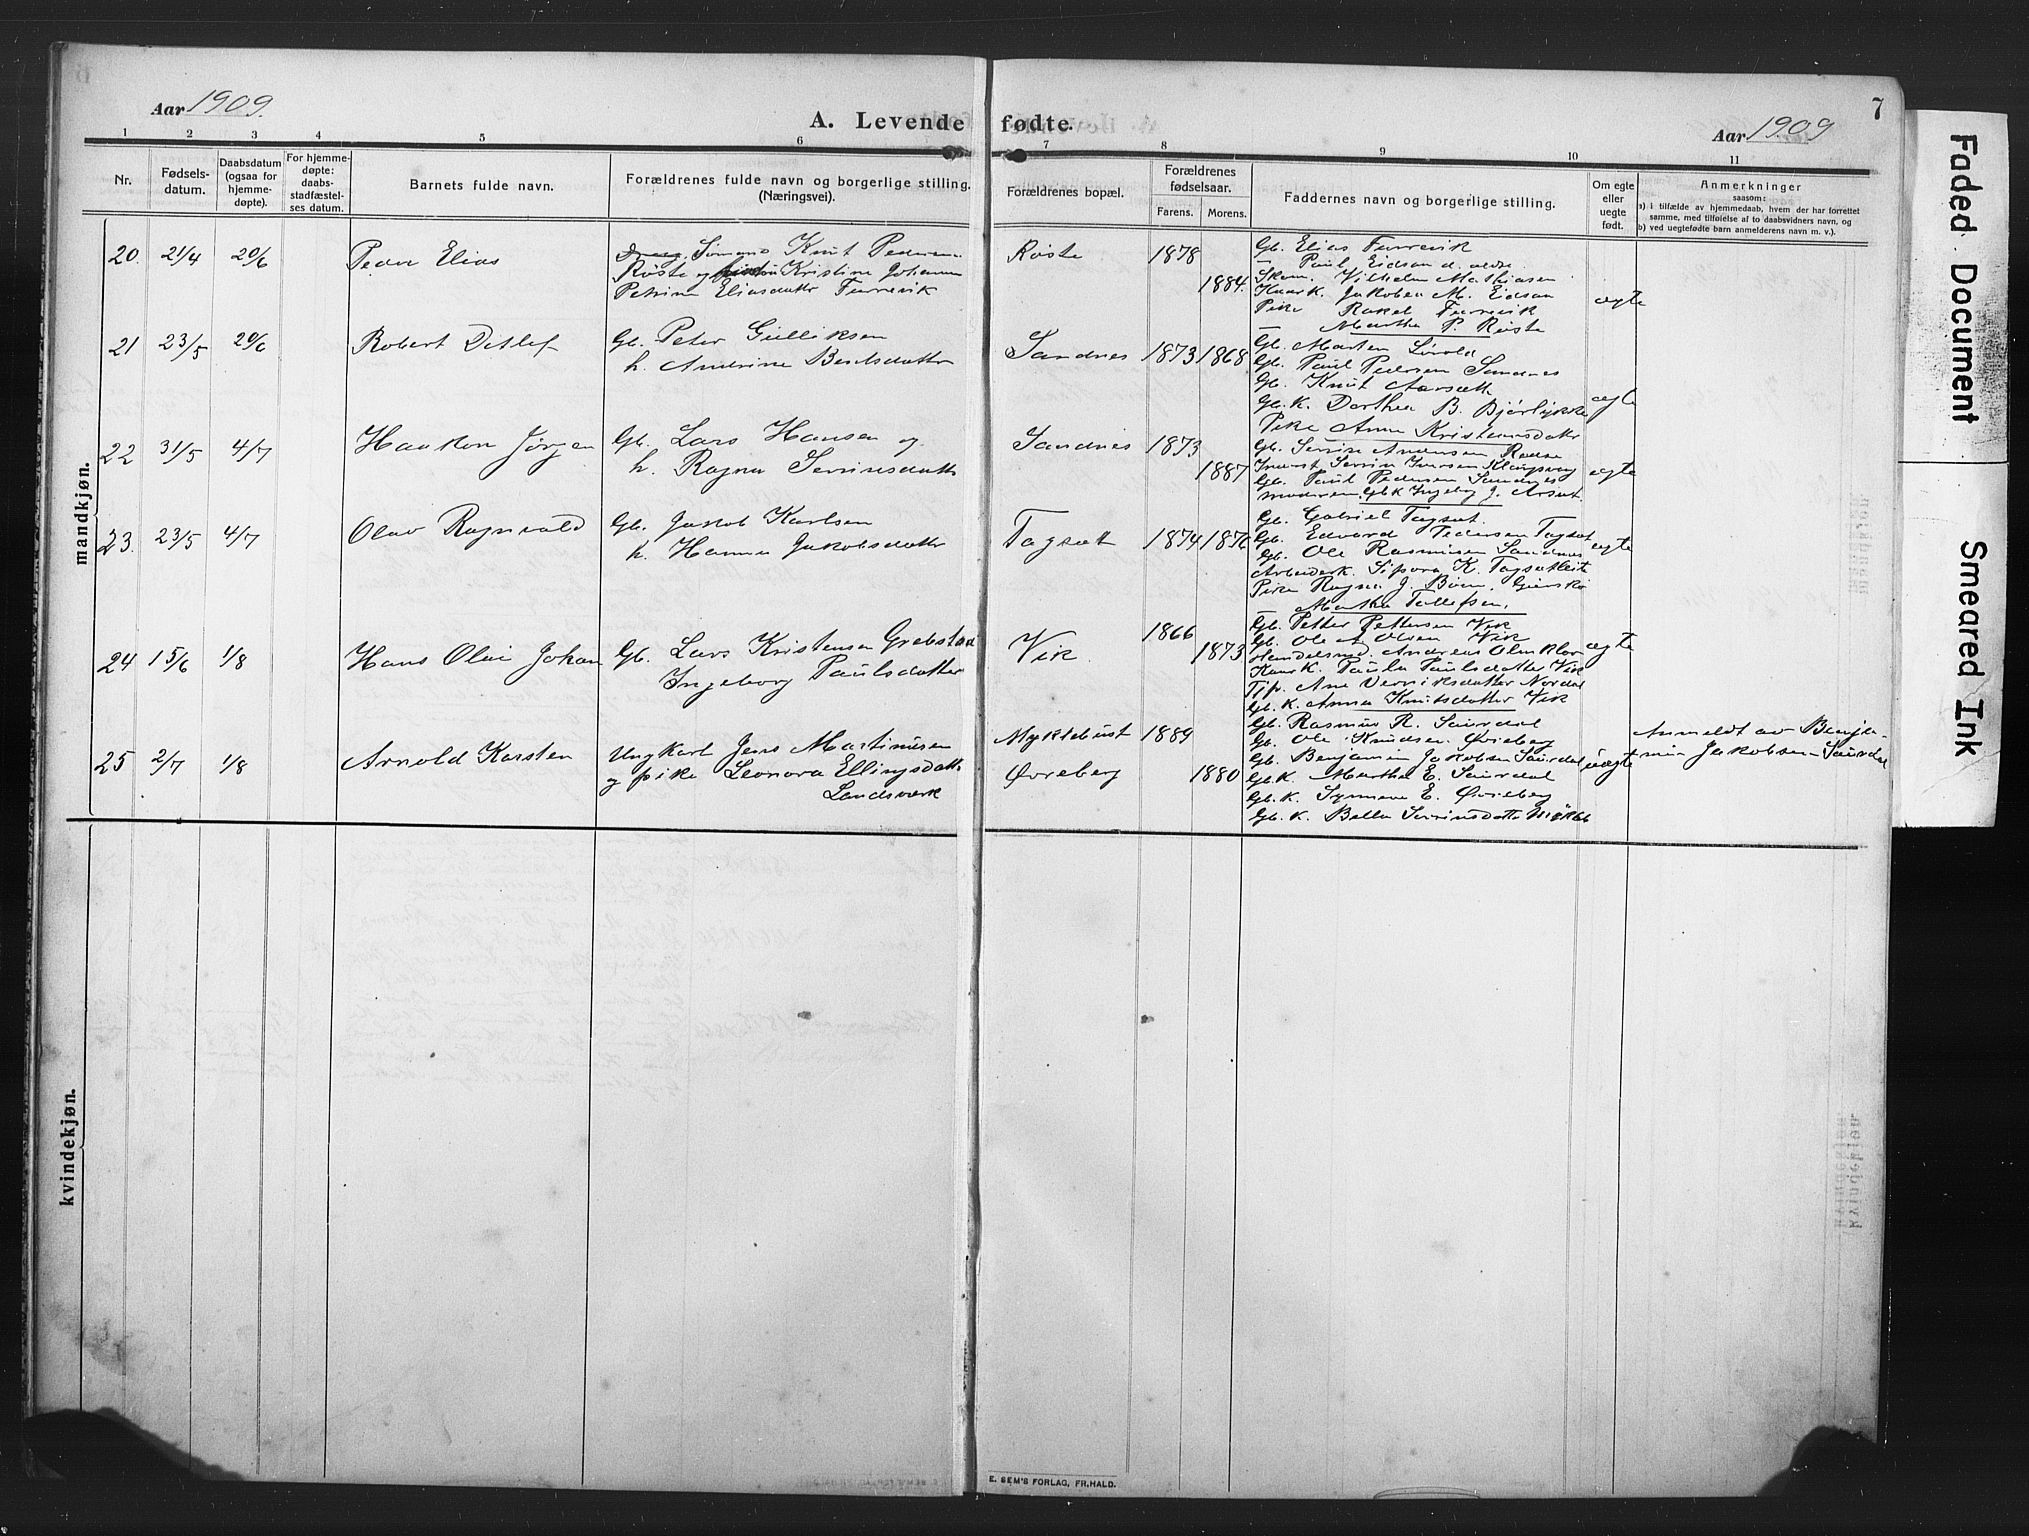 Aar 1909.
A. Levende fødte.
Aar 1909
7
1 2 3 4 5 6 7 8 9 10 11
Nr.
Fødsels-
datum.
Daabsdatum
(ogsaa for
hjemme-
døpte).
For hjemme-
døpte:
daabs-
stadfæstel-
ses datum.
Barnets fulde navn.
Forældrenes fulde navn og borgerlige stilling.
(Næringsvei).
Forældrenes bopæl.
Forældrenes
fødselsaar.
Farens. Morens.
Faddernes navn og borgerlige stilling.
Om egte
eller
uegte
født.
Anmerkninger
saasom:
a) i tilfælde av hjemmedaab, hvem der har forrettet
samme, med tilføielse af to daabsvidners navn, og
b) ved uegtefødte barn anmelderens navn m. v.).
mandkjøn.
20. 21/4 20/6 Peder Elias
Sømand Knut Pedersen
Røste og Kristine Johanne
Petrine Eliasdatter Furrevik
Røste 1878
1884.
Gb. Elias Furrevik
— Paul Eidsaa d. ældre
Vilhelm Mathiasen
Jakobea M. Eidsaa
Pike Rakel Furrevik
— Martha P. Røiste
egte
21 23/5 20/6 Robert Detlef
Gb. Peter Gulliksen
h. Andrine Bentsdatter
Sandnes 1873 1868
Gb. Marten
Gb. Paul Pedersen Sandnes
Gb. Knut Aarsæth
Gb. K. Dorthea B. Bjørlykke
Pike Anne Kristensdatter
egte
22 31/5 4/7 Haakon Jørgen
Gb. Lars Hansen og
h. Ragna Severinsdatter
Sandnes 1873
1887
Gb. Severin Andersen
Severin Iversen
Gb. Paul Pedersen Sandnes
moderen, Gb K Ingeborg J. Arsæt.
egte
23. 23/5 4/7 Olav Ragnvald
Gb. Jakob Karlsen
h. Hanna Jakobsdatter
Tagsæt 1874 1876
Gb. Gabriel Tagsæt.
Gb. Edvard Pedersen Tagsæt
Gb. Ole Rasmusen Sandnes
Arbeiderk. Sipora K.
Pike Ragna J.
— Martha Tollefsen.
egte
24 15/6 1/8 Hans Olai Johan
Gb. Lars Kristensen Grebstad
Ingeborg Paulsdatter
Vik. 1866
1873
Gb. Petter Pettersen Vik
Gb. Ole A. Olsen Vik
Handelsmd. Andreas
Kaark. Paula Paulsdatter Vik
Tjp. Ane Nordal
Gb. K. Anna Knutsdatter Vik
egte
25 2/7 1/8 Arnold Karsten
Ungkarl Jens Martinusen
og pike Leonora Ellingsdatter
Landsverk
Myklebust 1889
Øvreberg 1880
Gb. Rasmus R. Saurdal
Gb. Ole Knudsen Øvreberg
Gb. Benjamin Jakobsen Saurdal
Gb.K. Marthe E. Saurdal
Gb. K. Synneve E. Øvreberg
Gb. K. Bella Severinsdatter
uegte
Anmeldt av Benja-
min Jakobsen Saurdal
kvindekjøn.
E. SEM'S FORLAG, FR.HALD.
Faded Document
Smeared Ink